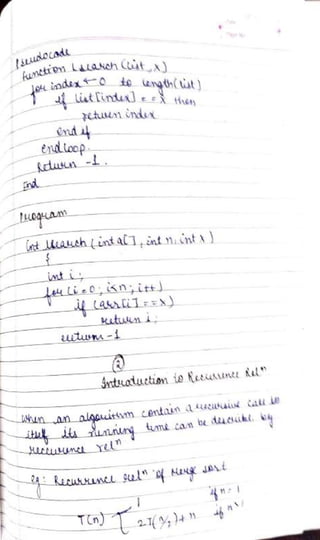 Pseudocode
function Lsearch (list, x)
for index ← 0 to length(list)
if list[index] == x then
return index
end if
end loop.
Return -1.
End
Program
int lsearch (int a[], int n, int x)
{
int i;
for (i=0; i<n; i++)
if (arr[i] == x)
return i;
return -1
②
Introduction to Recurrence Relⁿ
When an algorithm contain a recursive call to
itself its running time can be describe by
reccurence relⁿ
eg: Recurrence relⁿ of Merge sort
T(n) { 1 if n=1
2T(n/2)+n if n>1